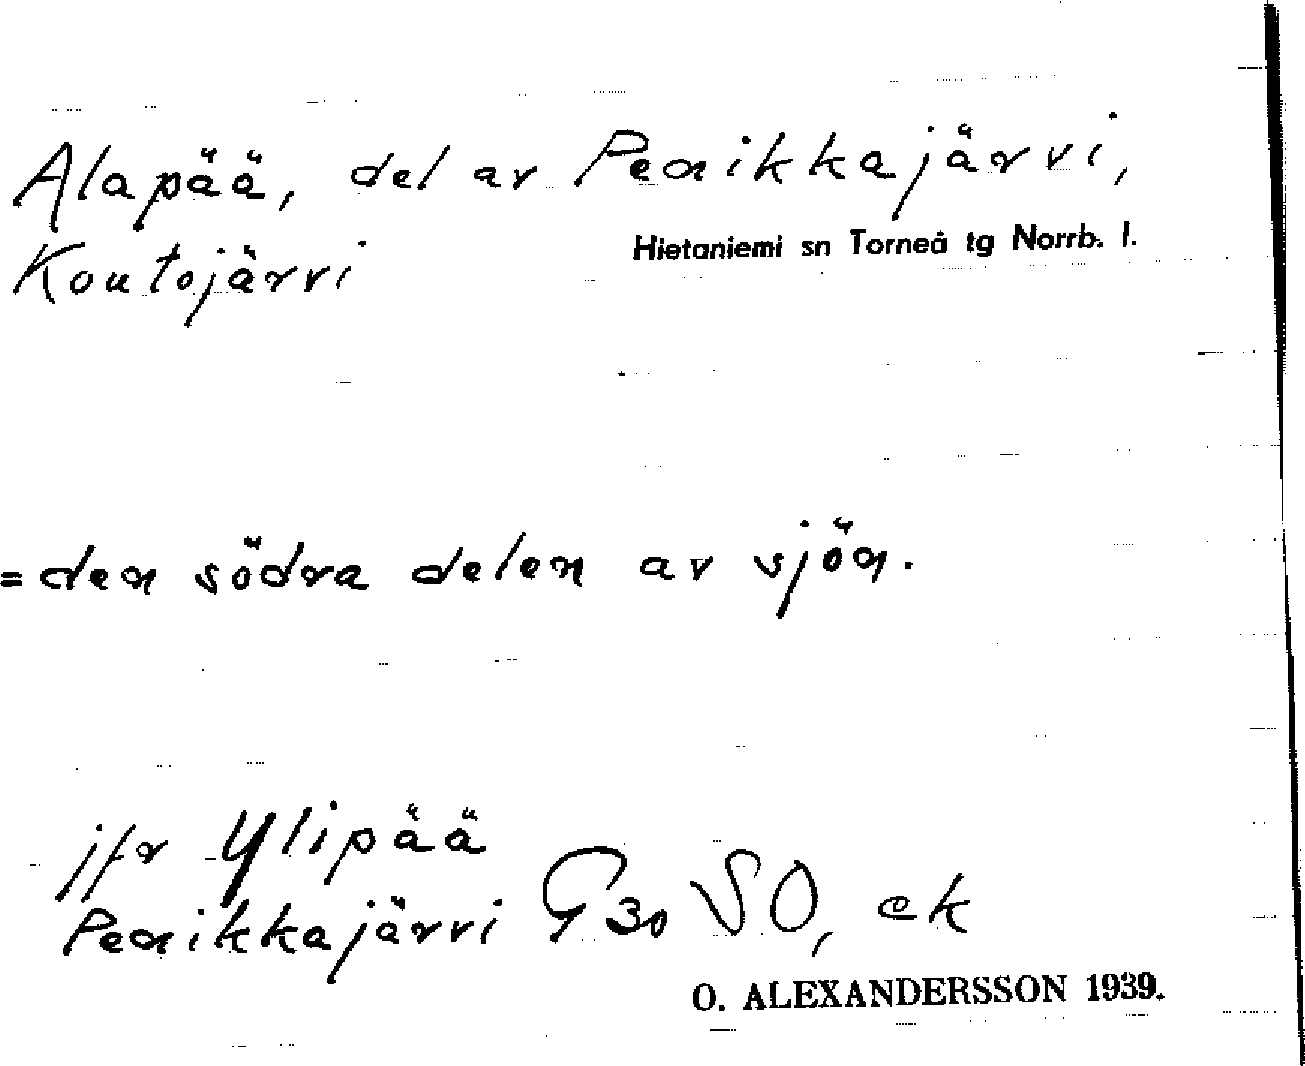 Alapää, del av Penikkajärvi,
Koutojärvi
Hietaniemi sn Torneå tg Norrb. l.
= den södra delen av sjön.
jfr Ylipää
Penikkajärvi G30 SO, ek
O. ALEXANDERSSON 1939.